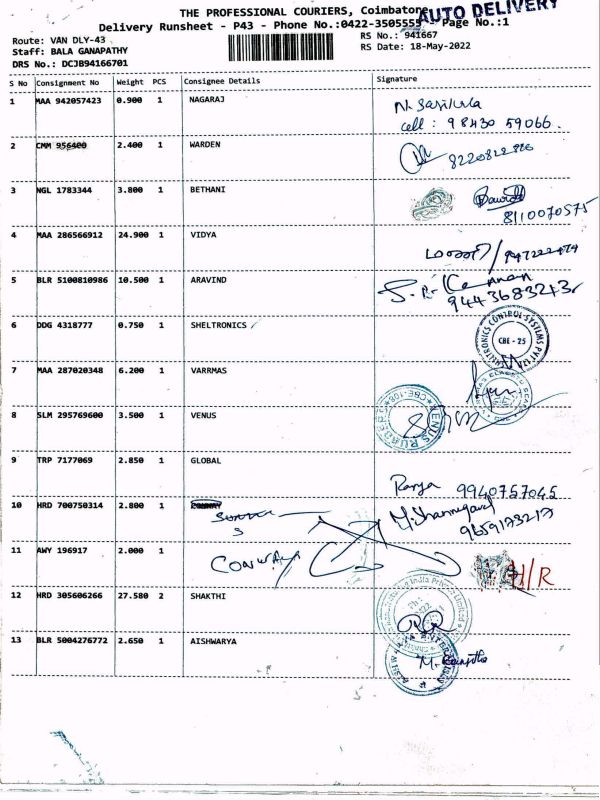 THE PROFESSIONAL COURIERS, Coimbatore
AUTO DELIVERY
Delivery Runsheet - P43 - Phone No.:0422-3505555 - Page No.:1
Route: VAN DLY-43
RS No.: 941667
Staff: BALA GANAPATHY
RS Date: 18-May-2022
DRS No.: DCJB94166701
S No Consignment No Weight PCS Consignee Details Signature
1 MAA 942057423 0.900 1 NAGARAJ
cell : 98430 59066
2 CMM 956400 2.400 1 WARDEN
3 NGL 1783344 3.800 1 BETHANI
8110070575
4 MAA 286566912 24.900 1 VIDYA
5 BLR 5100810986 10.500 1 ARAVIND
9443683213
6 DDG 4318777 0.750 1 SHELTRONICS
CONTROL SYSTEMS PVT
CBE - 25
7 MAA 287020348 6.200 1 VARRMAS
8 SLM 295769600 3.500 1 VENUS
VENUS
9 TRP 7177069 2.850 1 GLOBAL
Ramya 9940757045
10 HRD 700750314 2.800 1 CONWAY
M. Shanmugavel
9659173217
11 AWY 196917 2.000 1
CONWAY
H/R
12 HRD 305606266 27.580 2 SHAKTHI
India Private Limited
13 BLR 5004276772 2.650 1 AISHWARYA